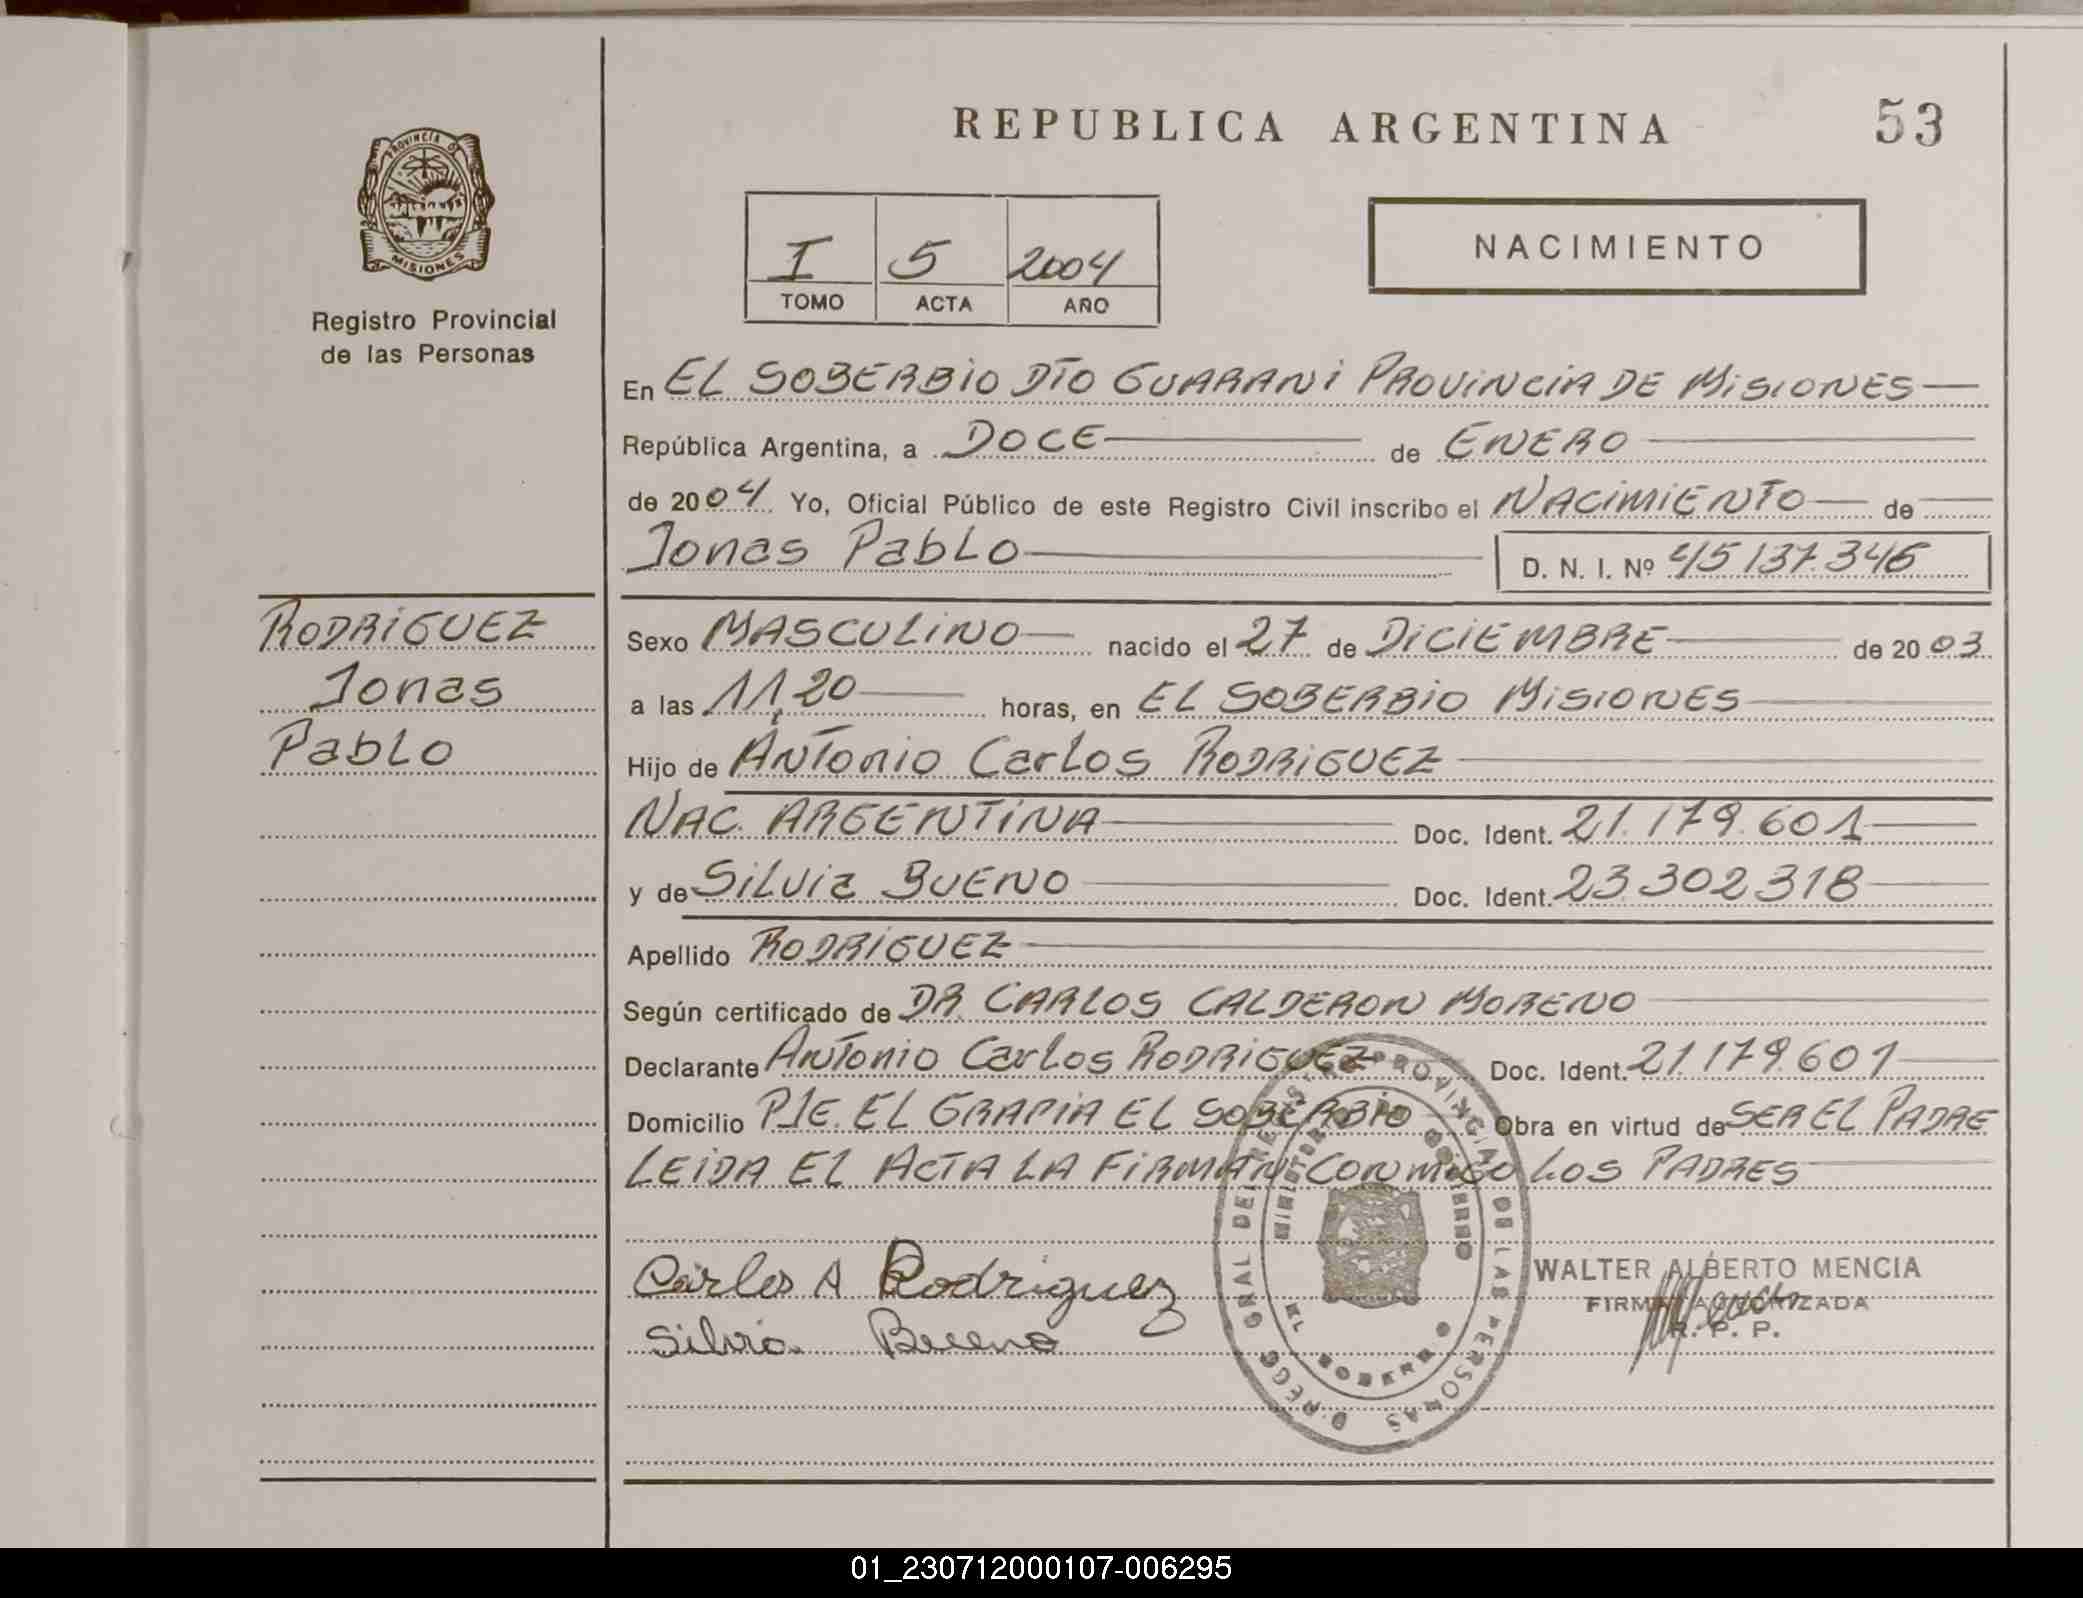 REPUBLICA ARGENTINA
53
PROVINCIA DE
MISIONES
Registro Provincial
de las Personas
I 5 2004
TOMO ACTA AÑO
NACIMIENTO
En EL SOBERBIO DTO GUARANI PROVINCIA DE MISIONES
República Argentina, a DOCE de ENERO
de 2004 Yo, Oficial Público de este Registro Civil inscribo el NACIMIENTO de
Jonas Pablo D. N. I. Nº 45137.346
RODRIGUEZ
Jonas
Pablo
Sexo MASCULINO nacido el 27 de DICIEMBRE de 2003
a las 11,20 horas, en EL SOBERBIO MISIONES
Hijo de Antonio Carlos RODRIGUEZ
NAC. ARGENTINA Doc. Ident. 21.179.601
y de Silvia BUENO Doc. Ident. 23.302318
Apellido RODRIGUEZ
Según certificado de DR. CARLOS CALDERON MORENO
Declarante Antonio Carlos RODRIGUEZ Doc. Ident. 21.179.601
Domicilio PJE. EL GRAPIA EL SOBERBIO Obra en virtud de SER EL PADRE
LEIDA EL ACTA LA FIRMAN CONMIGO LOS PADRES
Carlos A Rodriguez
Silvia Bueno
WALTER ALBERTO MENCIA
FIRMA AUTORIZADA
R. P. P.
PROVINCIAL DE LAS PERSONAS
EL SOBERBIO
01_230712000107-006295